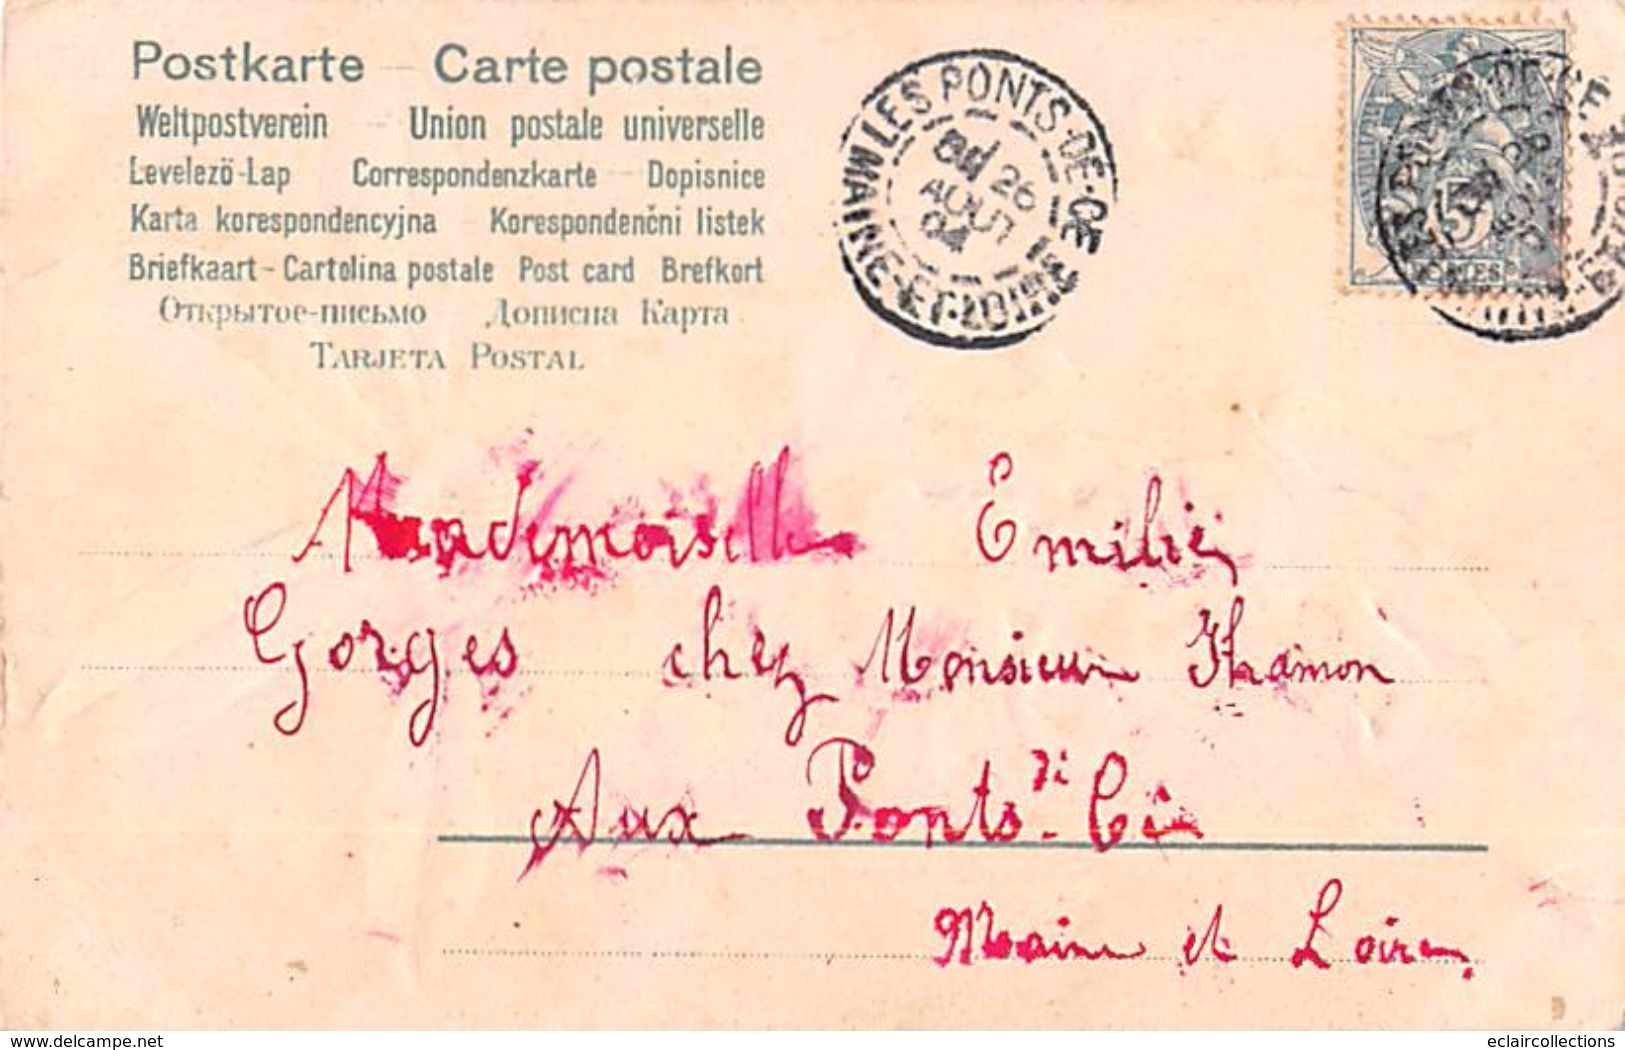 Postkarte – Carte postale
Weltpostverein – Union postale universelle
Levelező-Lap – Correspondenzkarte – Dopisnice
Karta korespondencyjna – Korespondenční listek
Briefkaart - Cartolina postale Post card Brefkort
Открытое-письмо Дописна Карта
TARJETA POSTAL
LES PONTS-DE-CÉ
26
AOUT
04
MAINE-ET-LOIRE
5
Mademoiselle Emilie
Gorges chez Monsieur Thamon
Aux Ponts de Cé
Maine et Loire
www.delcampe.net
eclaircollections